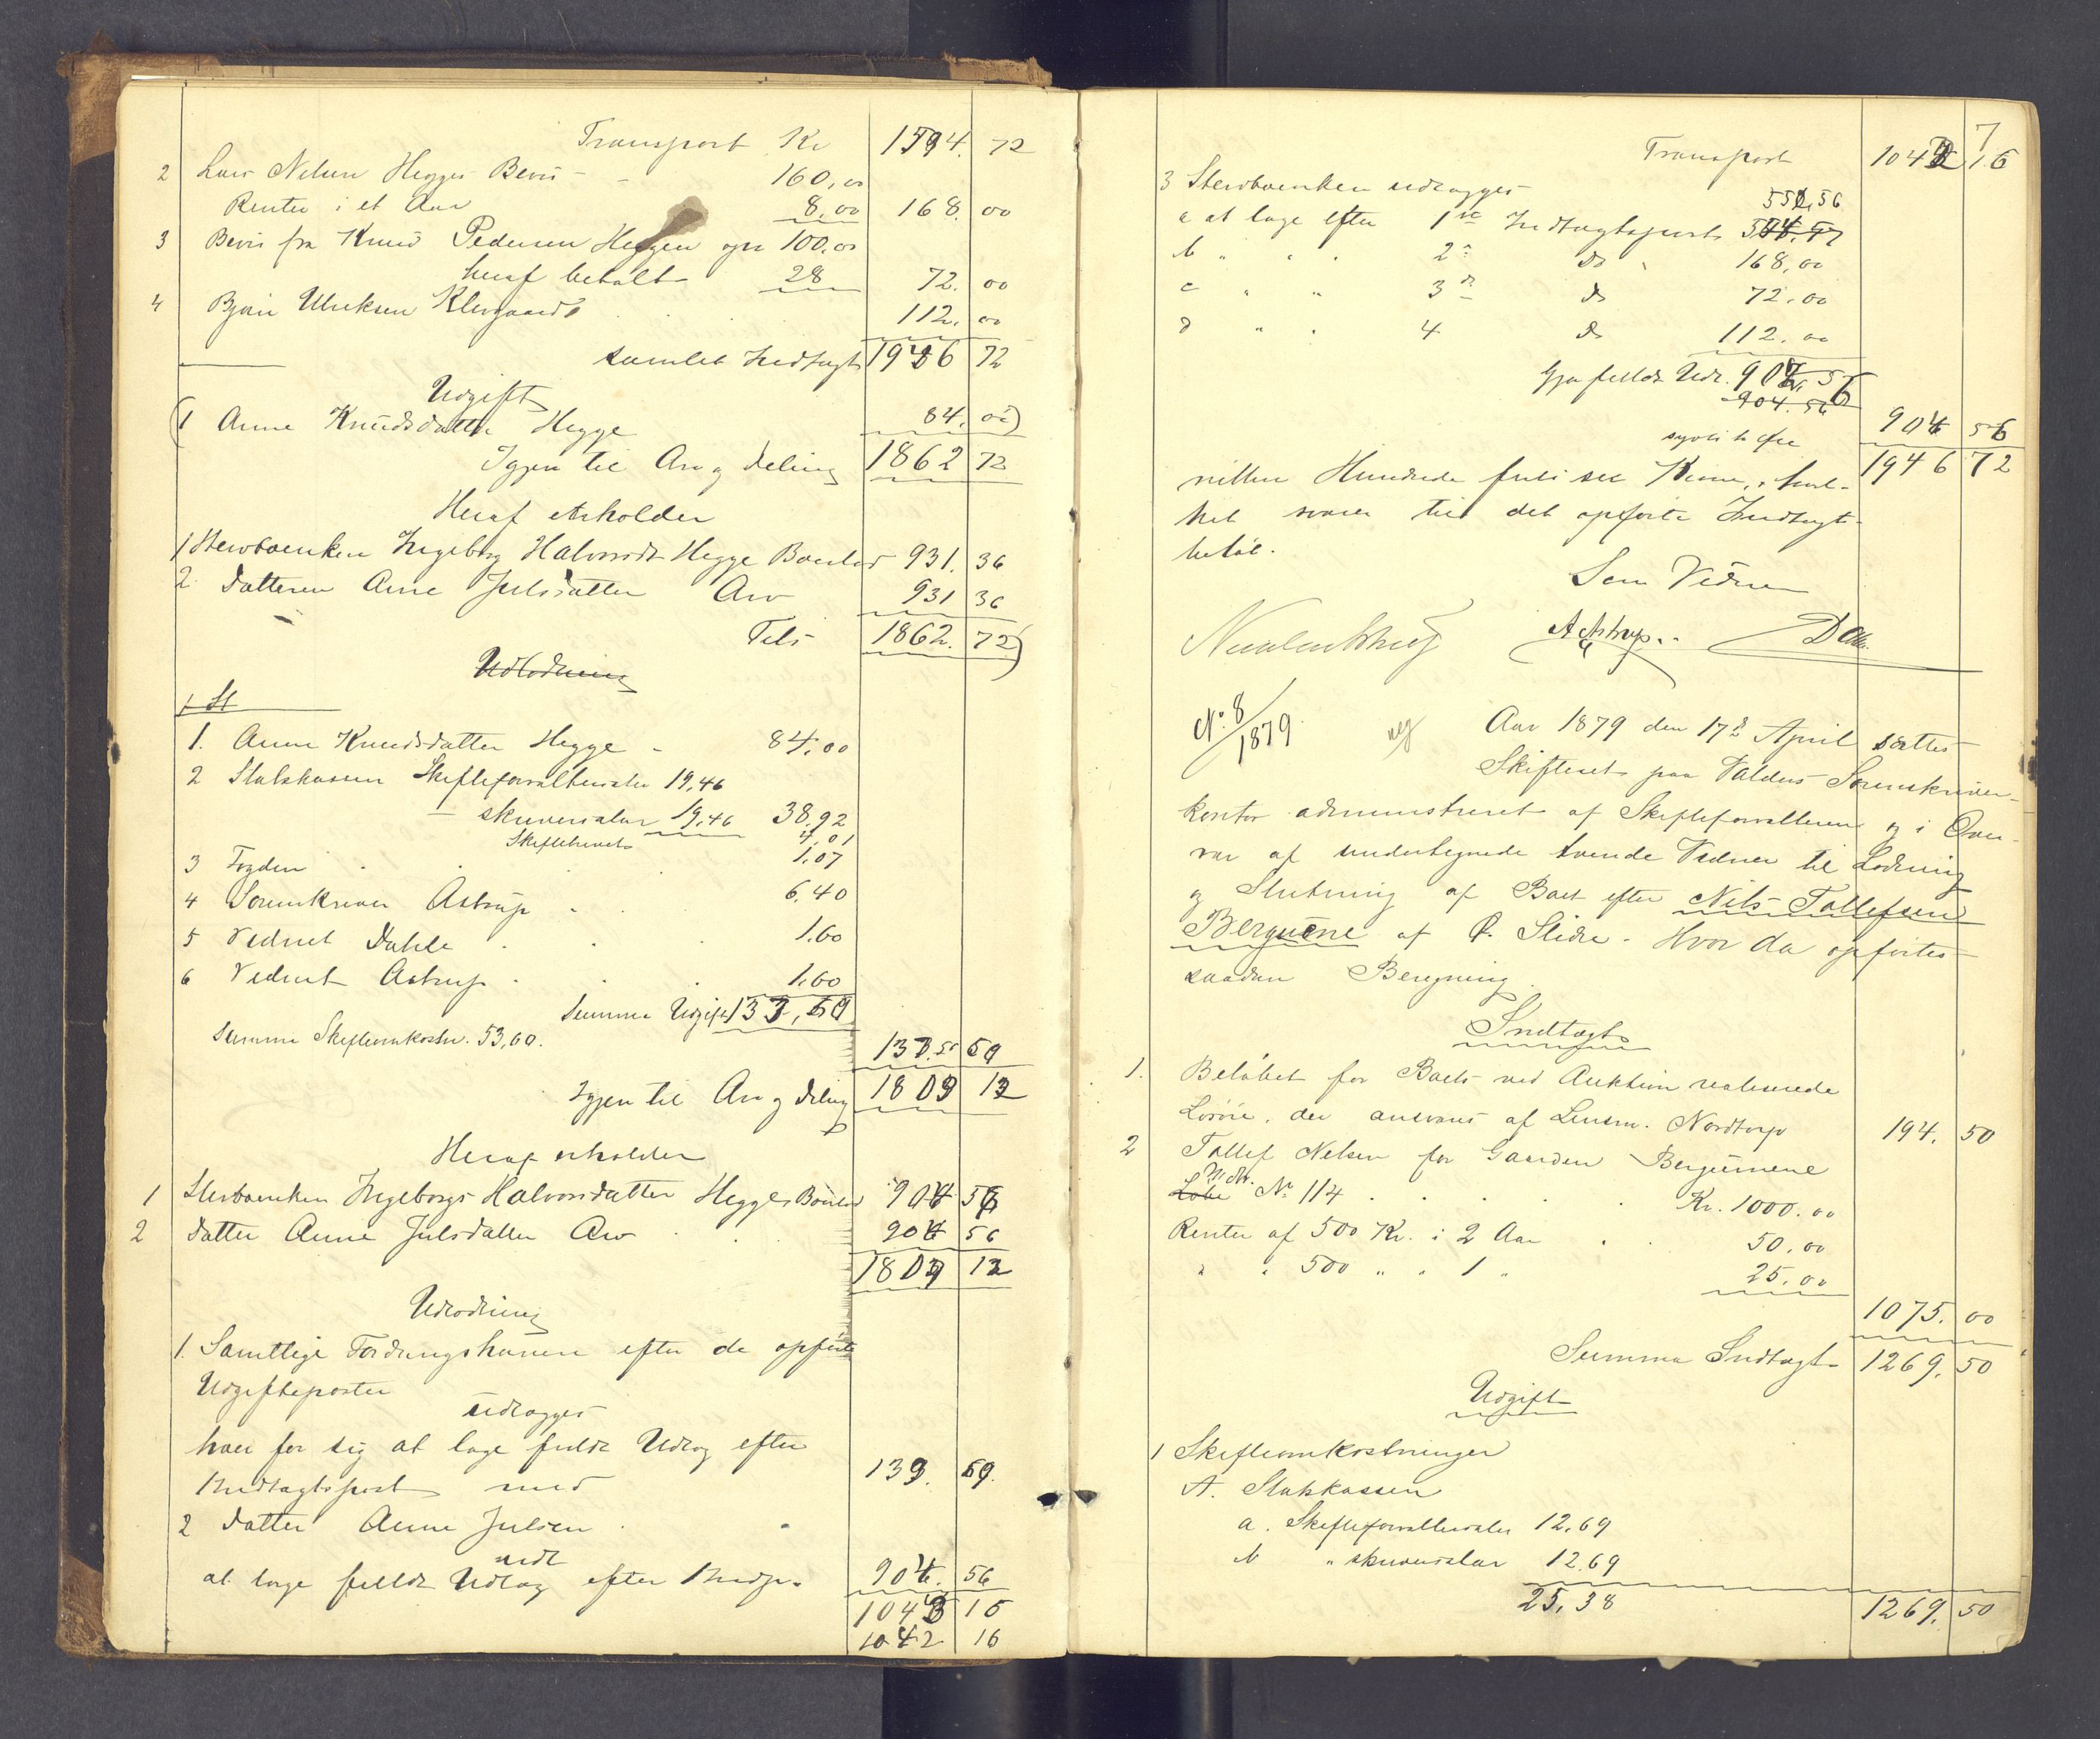 Transport Kr 1594. 72
2 Lars Nilsen Hegges Bevis - - 160,00
Renter i et Aar 8,00 168. 00
3 Bevis fra Knud Pedersen Heggen opr 100.00
heraf betalt 28 72. 00
4 Bjørn Ulriksen Klevgaard 112. 00
samlet Indtægt 1946 72
Udgift
(1 Anne Knudsdatter Hegge 84. 00)
Igjen til Arv og Deling 1862 72
Heraf erholder
1 Stervboenken Ingeborg Halvorsdr Hegge Boeslod 931. 36
2. Datteren Anne Julsdatter Arv 931 36
Tils 1862. 72)
Udlodning
1 St
1. Anne Knudsdatter Hegge - 84,00
2 Statskassen Skifteforvaltersalær 19,46
— skriversalær 19,46 38,92
Skiftebrevet 4,01
3 Fogden 1,07
4 Sorenskriver Astrup - 6,40
5 Vidnet Dahle 1.60
6 Vidnet Astrup 1.60
Summa Udgift 137,60
Summa Skifteomkostn. 53,60.
137. 60
Igjen til Arv og Deling 1809 12
Heraf erholder
1 Stervboenken Ingeborgs Halvorsdatter Hegges Boeslod 904 56
2 Datter Anne Julsdatter Arv 904 56
1809 12
Udlodning
1. Samtlige Fordringshavere efter de opførte
Udgiftsposter
udlægges
hver for sig at tage fuldt Udlæg efter
Indtægtspost med 137. 60
2 Datter Anne Julsen
at tage fuldt Udlæg efter Indp. 904. 56
1042 16
1042 16
7
Transport 1042 16
3 Stervboenken udlægges
552,56
a at tage efter 1ste Indtægtspost
b " " " 2den Do 168,00
c " " 3die Do 72.00
d " " 4 Do 112.00
Gjør fuldt Udl. 904, 56
904.56
904 56
syvti to Øre
nitten Hundrede firti sex Kroner, hvil- 1946 72
ket svarer til det opførte Indtægt-
beløb.
Som Vidner
Astrup.. Dahle
No 8/1879 Aar 1879 den 17de April sattes
Skifteret paa Valders Sorenskriver-
kontor administreret af Skifteforvalteren og i Over-
vær af undertegnede tvende Vidner til Lodning
og Slutning af Boet efter Nils Tollefsen
Berguene af Ø. Slidre. Hvor da opførtes
saadan Beregning.
Indtægt
1. Beløbet for Boets ved Auktion realiserede
Løsøre, der ansvares af Lensm. Nordtorp 194. 50
2 Tollef Nilsen for Gaarden Berguenene
Mdr.
Løbe No 114 . . . . Kr. 1000.00
Renter af 500 Kr. i 2 Aar . . 50.00
" " 500 " " 1 " 25.00
1075. 00
Summa Indtægt 1269. 50
Udgift
1 Skifteomkostninger
A. Statskassen
a. Skifteforvaltersalær 12.69
b " skriversalær 12.69
25.38 1269. 50